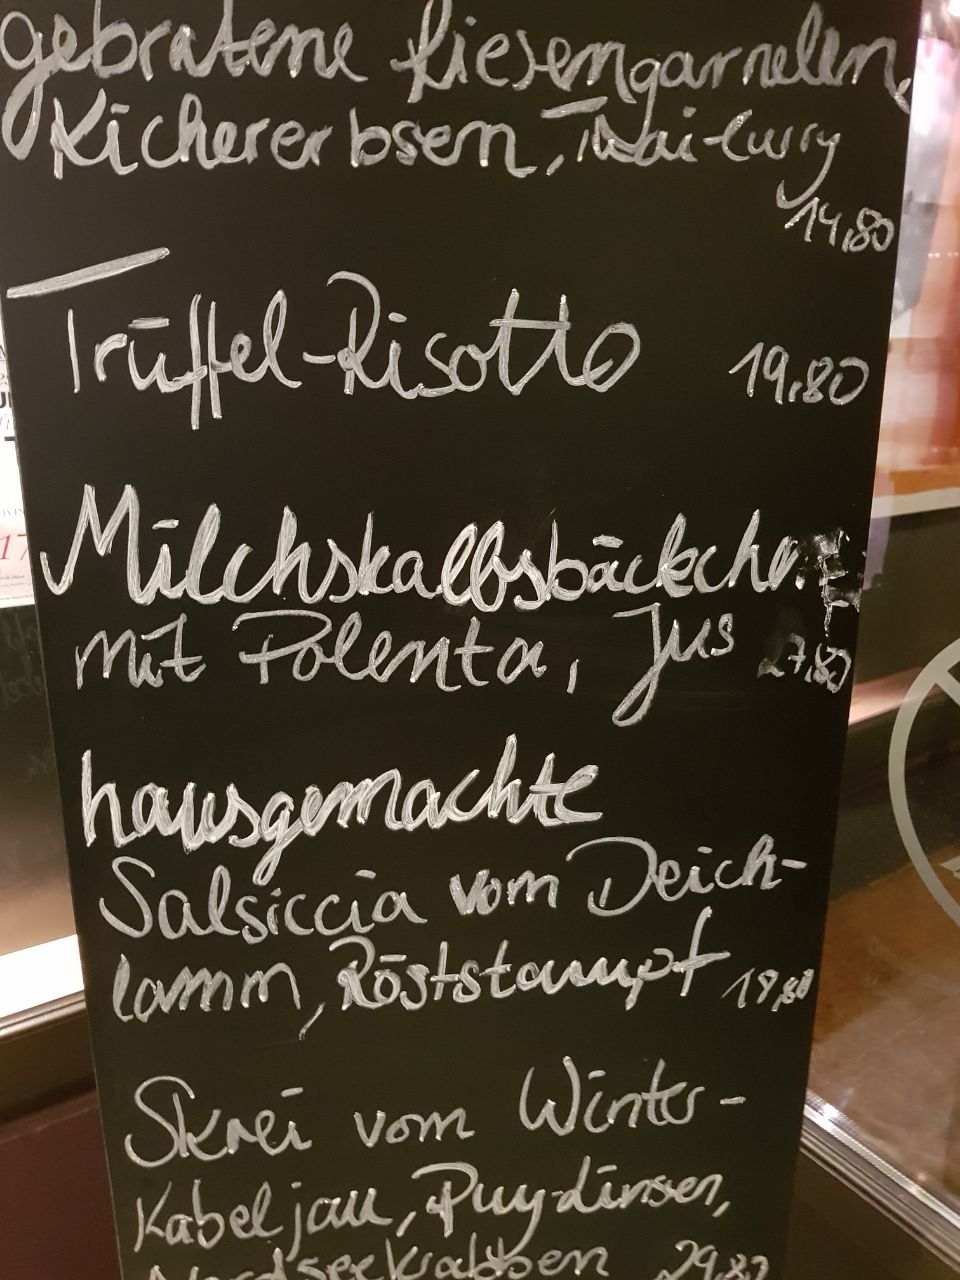 gebratene Riesengarnelen,
Kichererbsen, Thai-Curry
14,80
Trüffel-Risotto 19,80
Milchskalbsbäckchen
mit Polenta, Jus 27,80
hausgemachte
Salsiccia vom Deich-
lamm, Röststampf 19,80
Skrei vom Winter-
Kabeljau, Puy-Linsen,
Nordseekrabben 29,80